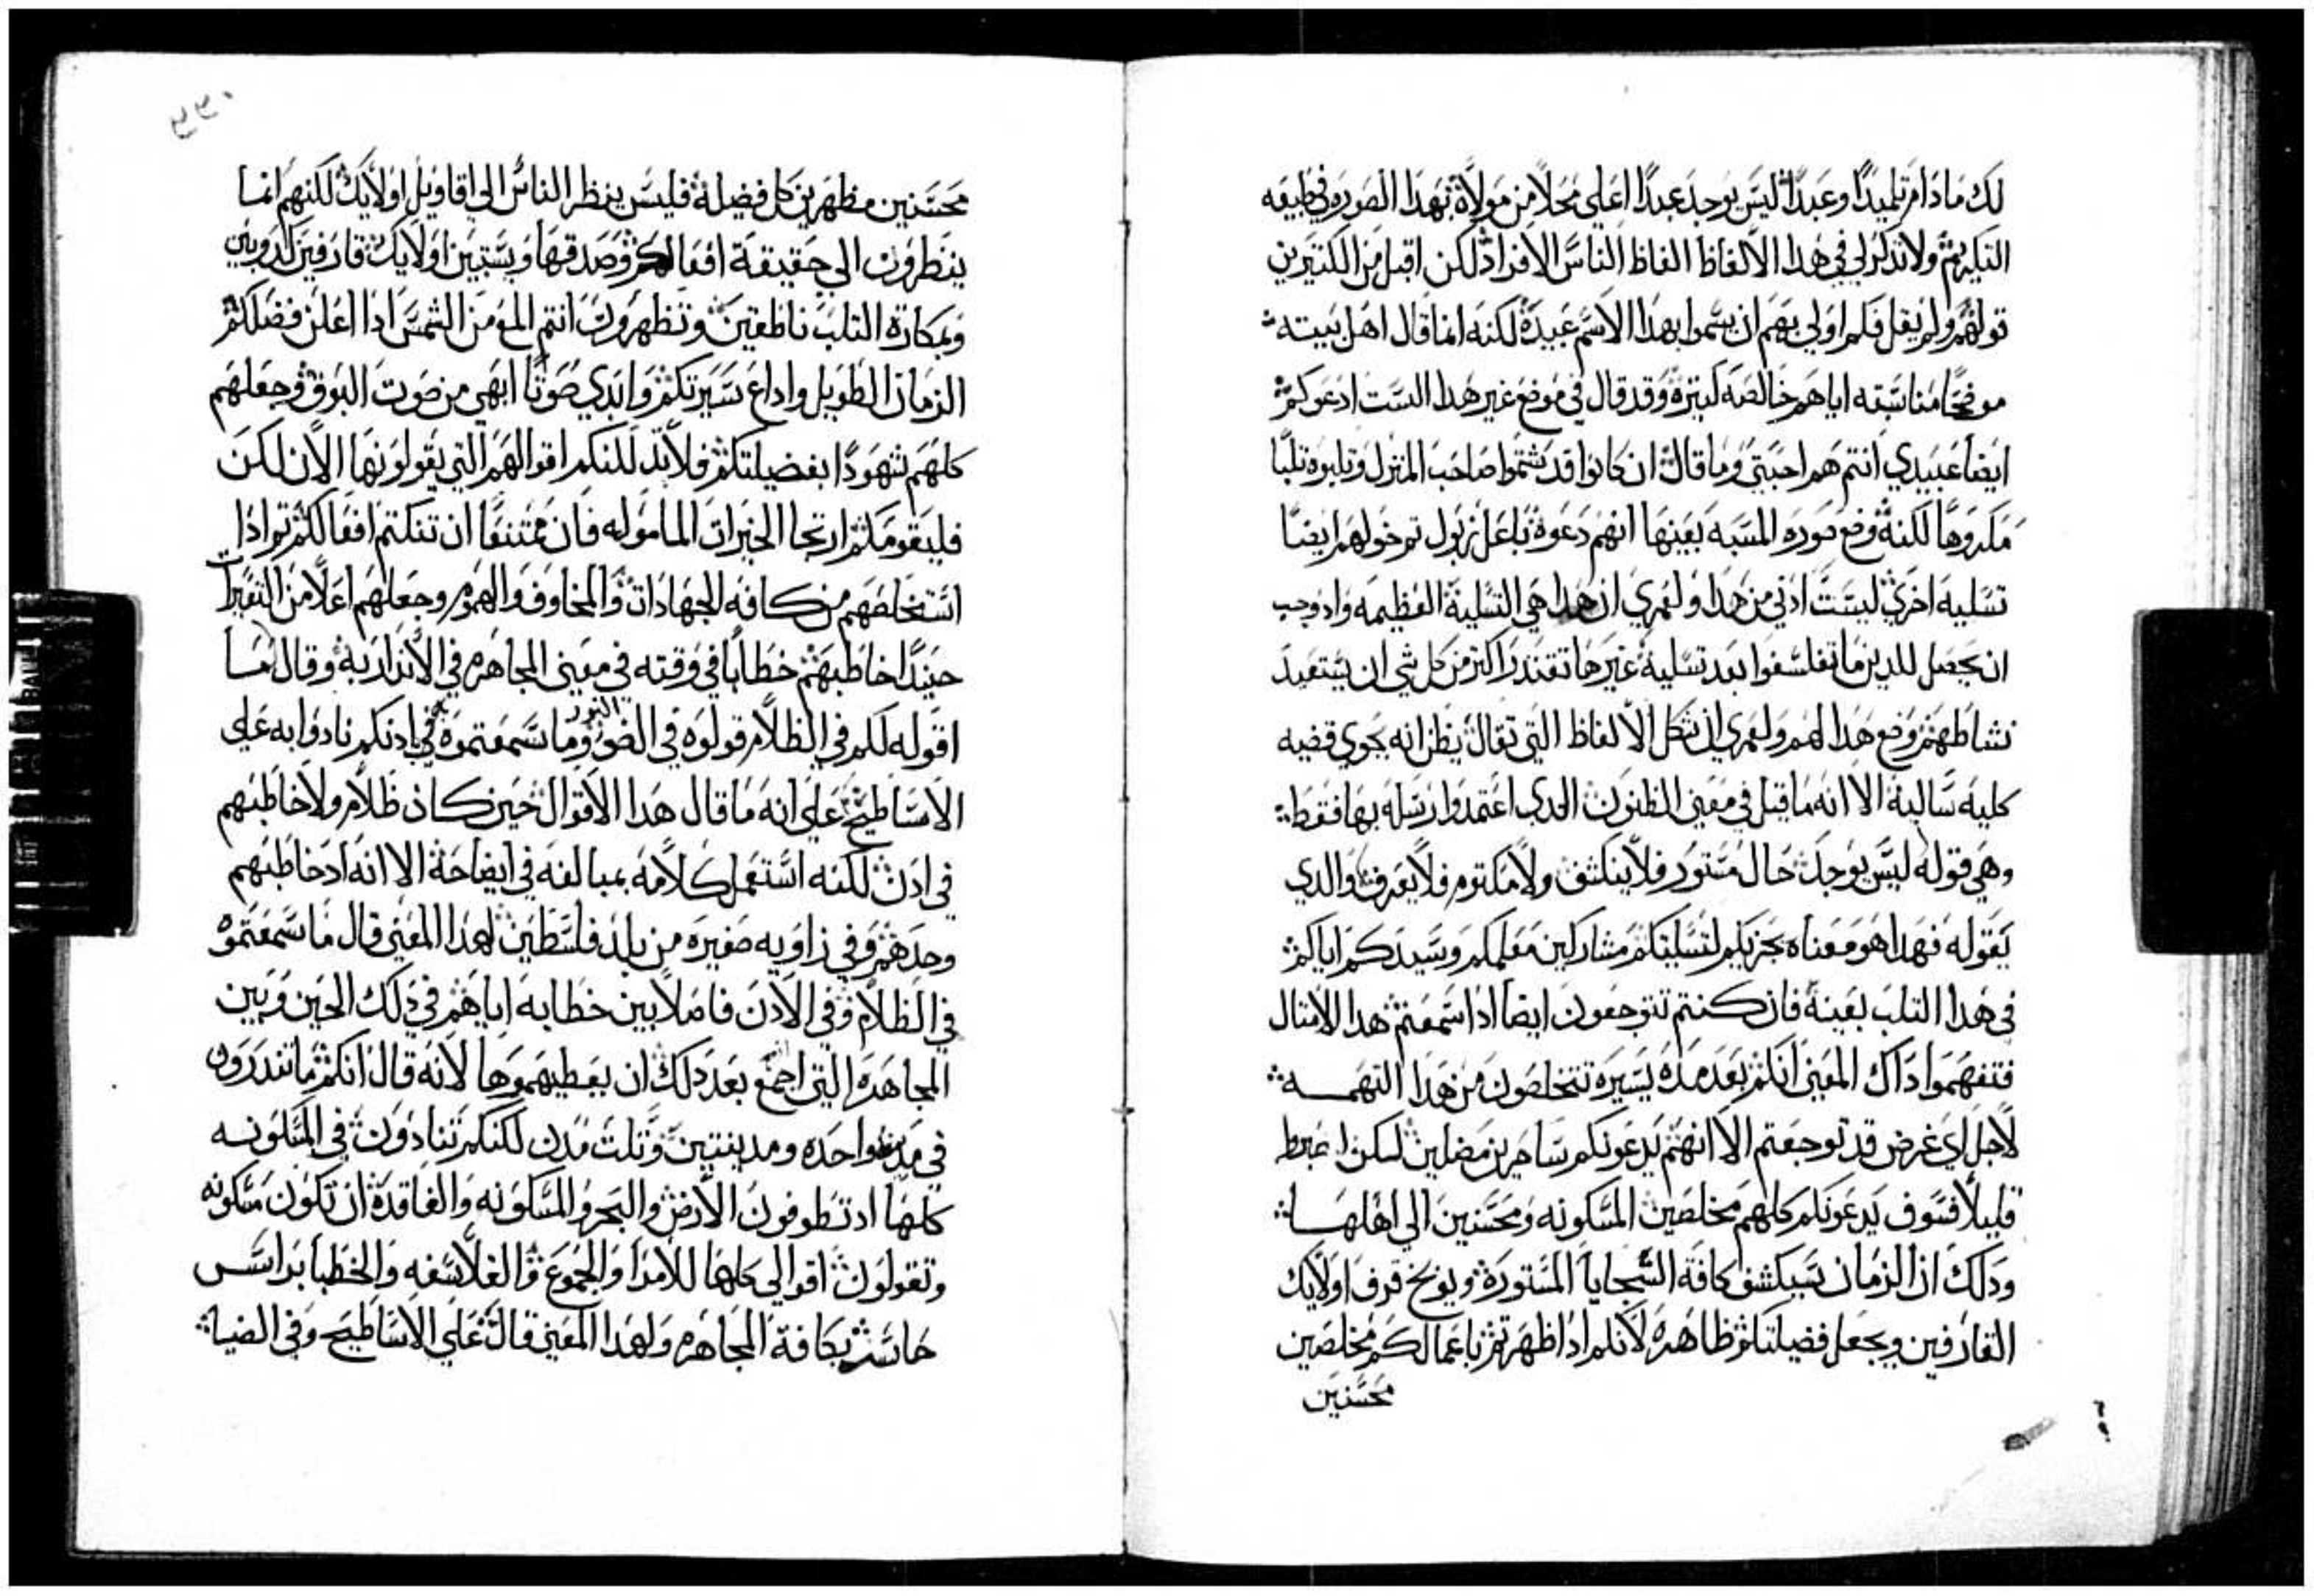 لك مادام تلميدًا وعبدًا ليس يوجد عبدًا اعلي محلًا من مولاه بهدا الصوره في طبيعه
التكريم ولا تدكر لي في هدا الالفاظ الفاظ الناس الافراد لكن اقبل من الكتيرين
قولهم ولم يقل فكم اولي بهم ان يسموا بهدا الاسم عبيده لكنه انما قال اهل بيته
موضحًا مناسبته اياهم خالصه كتيرة وقد قال في موضع غير هدا الست ادعوكم
ايضا عبيدي انتم هم احبتي وما قال ان كانوا قد شتموا صاحب المنزل وتلبوه تلبًا
مكروهًا لكنه وضع صوره المسبه بعينها انهم دعوة باعلزبول تم خولهم ايضًا
تسليه اخري ليست ادني من هدا ولعمري ان هدا هي التسلية العظيمه واد وجب
ان يحصل للدين ما تفلسفوا بعد تسلية غيرها تقتدر اكتر من كل شي ان يستعيد
نشاطهم وضع هدا لهم ولعمري ان شكل الالفاظ التي تقال يظن انه يحوي قضيه
كليه سالبة الا انه ما قيل في معني الظنون الدي اعتمدوا رسله بها فقط
وهي قوله ليس يوجد حال مستور فلا ينكشف ولا مكتوم فلا يعرف والدي
يقوله فهدا هو معناه يجزيكم لتسليتكم مشاركين معلمكم وسيدكم اياكم
في هدا التلب بعينة فان كنتم تتوجعون ايضا ادا سمعتم هدا الامتال
فتفهموا داك المعني انكم بعد مده يسيره تتخلصون من هدا التهمه
لاجل اي غرض قد توجعتم الا انهم يدعونكم ساحرين مضلين لكن
قليلًا فسوف يدعونكم كلهم مخلصين المسكونه ومحسنين الي اهلها
ودلك ان الزمان سيكشف كافة السجايا المستورة ويوبخ قرف اولايك
القارفين ويجعل فضيلتكم ظاهره لانكم ادا ظهرتم باعمالكم مخلصين
محسنين
٢٢٠
محسنين مظهرين كل فضيلة فليس ينظر الناس الي اقاويل اولايك لكنهم انما
ينظرون الي حقيقة افعالكم وصدقها ويستبين اولايك قارفين كدوبين
وبمكارة التلب ناطقين وتظهرون انتم المع من الشمس ادا اعلن فضلكم
الزمان الطويل واداع سيرتكم وابدي صوتًا ابهي من صوت البوق وجعلهم
كلهم شهودًا بفضيلتكم فلا تدللنكم اقوالهم التي يقولونها الان لكن
فليقومكم ارتجا الخيرات الماموله فان ممتنعًا ان تنكتم افعالكم تم ادا
استخلصهم من كافه الجهادات والمخاوف والهموم وجعلهم اعلا من التعييرات
حينيدًا خاطبهم خطابًا في وقته في معني المجاهره في الاندار به وقال ما
اقوله لكم في الظلام قولوه في الضو النور وما سمعتموه في ادنكم نادوا به علي
الاساطيح علي انه ما قال هدا الاقوال حين كان ظلام ولا خاطبهم
في ادن لكنه استعمل كلامه بمبالغه في ايضاحة الا انه اد خاطبهم
وحدهم وفي زاويه صغيره من بلد فلسطين لهدا المعني قال ما سمعتموه
في الظلام وفي الادن فاصلًا بين خطابه اياهم في دلك الحين وبين
المجاهده التي اجمع بعد دلك ان يعطيهموها لانه قال انكم ما تندرون
في مدينه واحده ومدينتين وتلت مدن لكنكم تنادون في المسكونه
كلها اد تطوفون الارض والبحر والمسكونه والفاقدة ان تكون مسكونه
وتقولون اقوالي كلها للامرا والجموع والفلاسفه والخطبا براس
حاسر بكافة المجاهره ولهدا المعني قال علي الاساطيح وفي الضيا